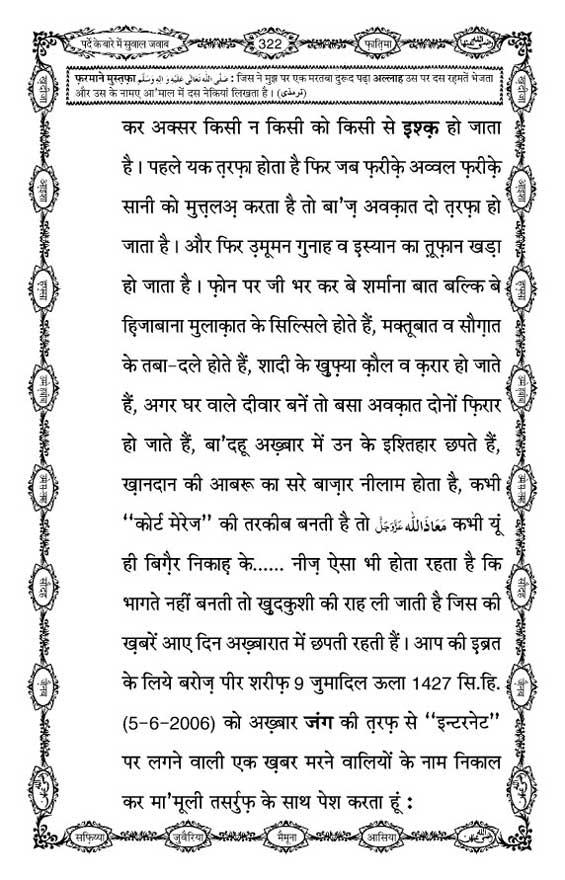 पर्दे के बारे में सुवाल जवाब
322
फ़ातिमा
फ़रमाने मुस्तफ़ा صَلَّى اللّٰهُ تَعَالٰى عَلَيْهِ وَاٰلِهٖ وَسَلَّم : जिस ने मुझ पर एक मरतबा दुरूद पढ़ा अल्लाह उस पर दस रहमतें भेजता
और उस के नामए आ'माल में दस नेकियां लिखता है। (ترمذی)
कर अक्सर किसी न किसी को किसी से इश्क़ हो जाता
है। पहले यक त़रफ़ा होता है फिर जब फ़रीक़े अव्वल फ़रीक़े
सानी को मुत्तलअ़ करता है तो बा'ज़ अवक़ात दो त़रफ़ा हो
जाता है। और फिर उ़मूमन गुनाह व इस्यान का त़ूफ़ान खड़ा
हो जाता है। फ़ोन पर जी भर कर बे शर्माना बात बल्कि बे
ह़िजाबाना मुलाक़ात के सिल्सिले होते हैं, मक्तूबात व सौग़ात
के तबा-दले होते हैं, शादी के ख़ुफ़्या क़ौल व क़रार हो जाते
हैं, अगर घर वाले दीवार बनें तो बसा अवक़ात दोनों फ़िरार
हो जाते हैं, बा'दहू अख़्बार में उन के इश्तिहार छपते हैं,
ख़ानदान की आबरू का सरे बाज़ार नीलाम होता है, कभी
“कोर्ट मेरेज” की तरकीब बनती है तो مَعَاذَاللّٰه عَزَّوَجَلَّ कभी यूं
ही बिग़ैर निकाह़ के...... नीज़ ऐसा भी होता रहता है कि
भागते नहीं बनती तो ख़ुदकुशी की राह ली जाती है जिस की
ख़बरें आए दिन अख़्बारात में छपती रहती हैं। आप की इब्रत
के लिये बरोज़ पीर शरीफ़ 9 जुमादिल ऊला 1427 सि.हि.
(5-6-2006) को अख़्बार जंग की त़रफ़ से “इन्टरनेट”
पर लगने वाली एक ख़बर मरने वालियों के नाम निकाल
कर मा'मूली तसर्रुफ़ के साथ पेश करता हूं :
सफ़िय्या
जुवैरिया
मैमूना
आसिया